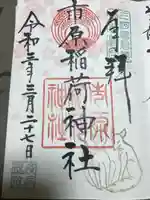 奉拝
市原稲荷神社
令和三年三月二十七日